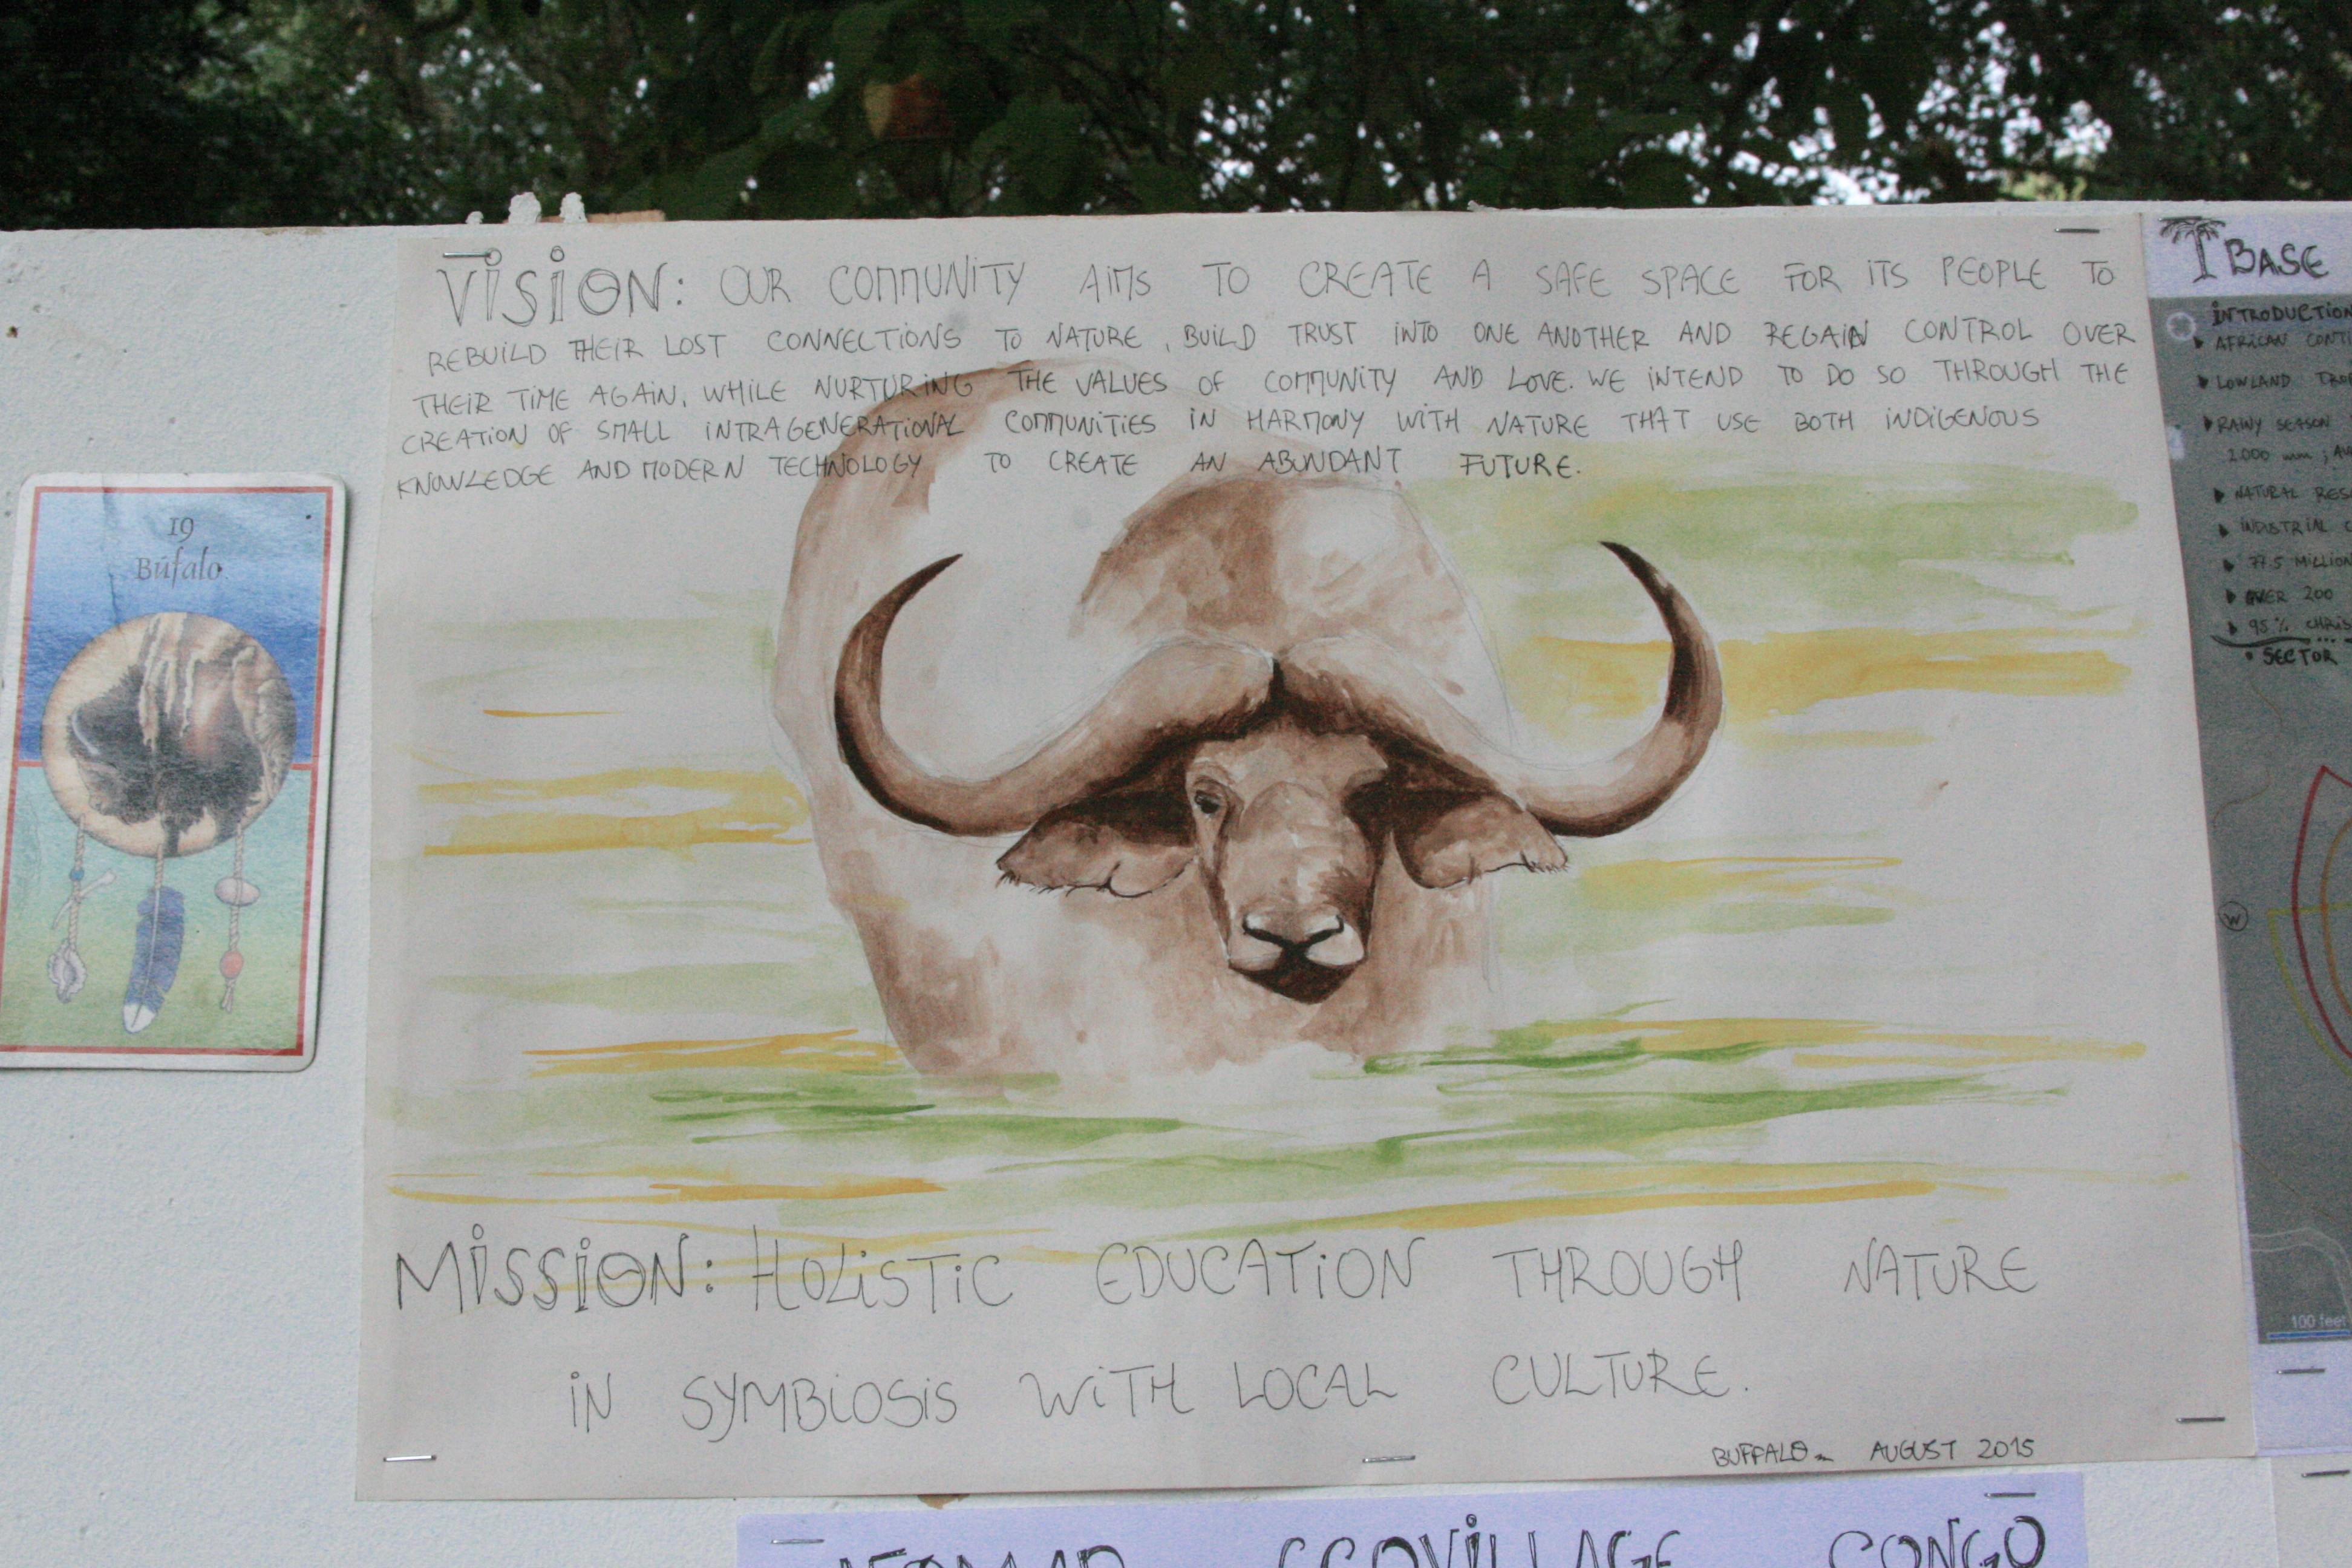 VISION: OUR COMMUNITY AIMS TO CREATE A SAFE SPACE FOR ITS PEOPLE TO
REBUILD THEIR LOST CONNECTIONS TO NATURE, BUILD TRUST INTO ONE ANOTHER AND REGAIN CONTROL OVER
THEIR TIME AGAIN, WHILE NURTURING THE VALUES OF COMMUNITY AND LOVE. WE INTEND TO DO SO THROUGH THE
CREATION OF SMALL INTRAGENERATIONAL COMMUNITIES IN HARMONY WITH NATURE THAT USE BOTH INDIGENOUS
KNOWLEDGE AND MODERN TECHNOLOGY TO CREATE AN ABUNDANT FUTURE.
19
Búfalo
MISSION: HOLISTIC EDUCATION THROUGH NATURE
IN SYMBIOSIS WITH LOCAL CULTURE.
BUFFALO AUGUST 2015
ECOVILLAGE CONGO
BASE
INTRODUCTION
AFRICAN
LOWLAND
RAINY SEASON
2.000 mm;
NATURAL
INDUSTRIAL
77.5 MILLION
OVER 200
95%
SECTOR
W
100 feet